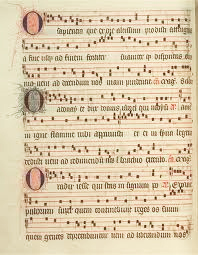 O sapiencia que ex ore altissimi prodisti
a fine usq; ad finem fortiter suaviter q; disponens
ad docendum nos viam prudencie
O adonay et dux domus israel qui
in igne flamme rubi apparuisti et ei in syna legem
veni ad redimendum nos in brachio extento
O radix iesse qui stas in signum
pulorum super quem continebunt reges os suum
quem gentes deprecabuntur veni ad liberandum nos